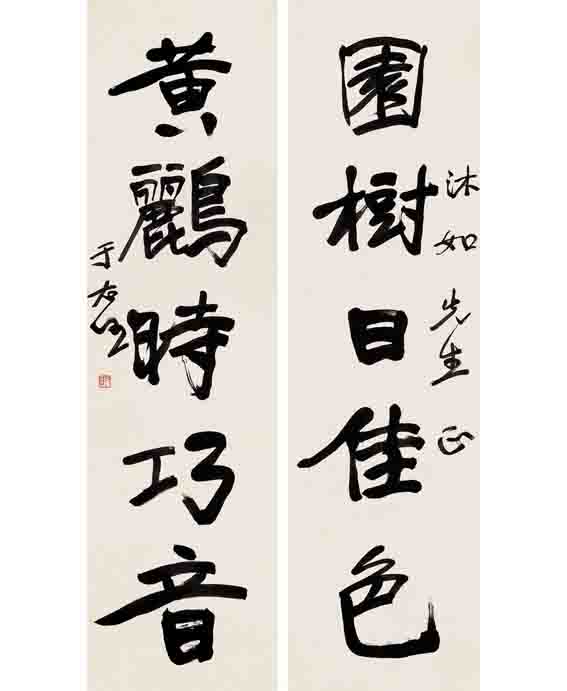 園樹日佳色
沐如先生正
黃鸝時巧音
于右任